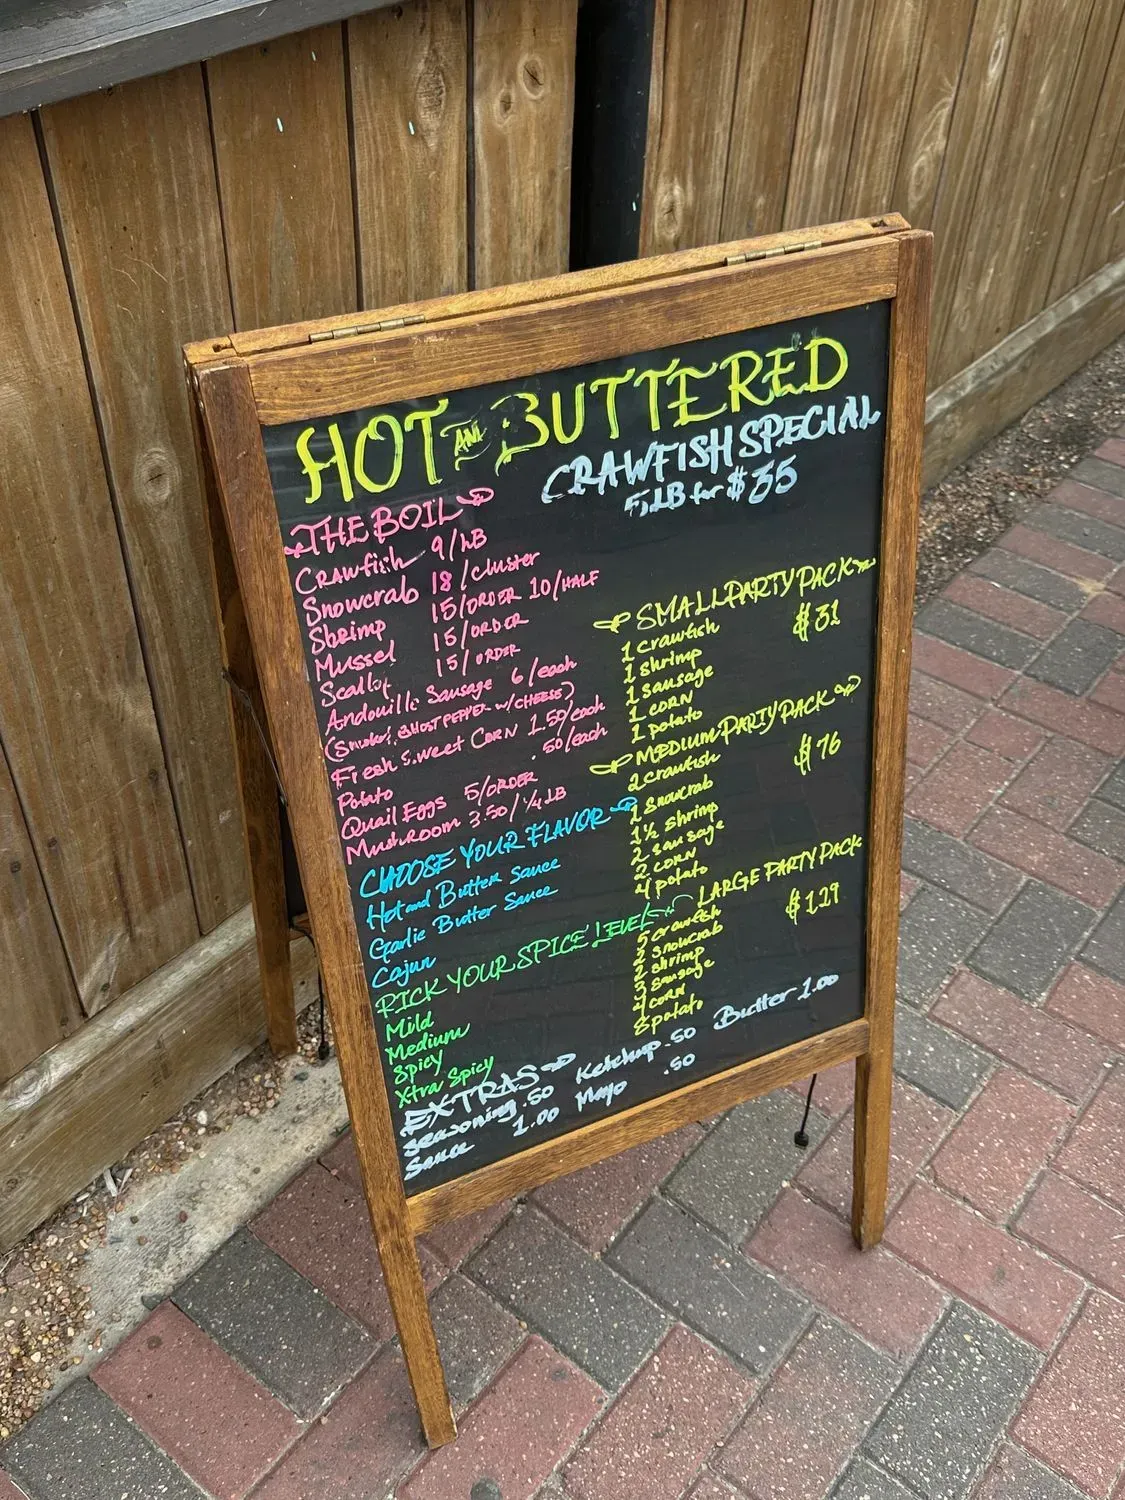 HOT AND BUTTERED
CRAWFISH SPECIAL
5LB for $35
THE BOIL
CRAWfish 9/LB
Snowcrab 18/cluster
Shrimp 15/ORDER 10/HALF
Mussel 15/ORDER
Scallop 15/ORDER
Andouille Sausage 6/each
(Smoked, GHOST PEPPER W/CHEESE)
Fresh Sweet CORN 1.50/each
Potato .50/each
Quail Eggs 5/ORDER
Mushroom 3.50/¼ LB
CHOOSE YOUR FLAVOR
Hot and Butter Sauce
Garlic Butter Sauce
Cajun
PICK YOUR SPICE LEVEL
Mild
Medium
Spicy
Xtra Spicy
SMALL PARTY PACK
$31
1 crawfish
1 shrimp
1 sausage
1 CORN
1 potato
MEDIUM PARTY PACK
$76
2 crawfish
1 Snowcrab
1½ shrimp
2 sausage
2 CORN
4 potato
LARGE PARTY PACK
$129
5 crawfish
2 snowcrab
2 shrimp
3 sausage
4 CORN
8 potato
EXTRAS
Seasoning .50
Sauce 1.00
Ketchup .50
Mayo .50
Butter 1.00